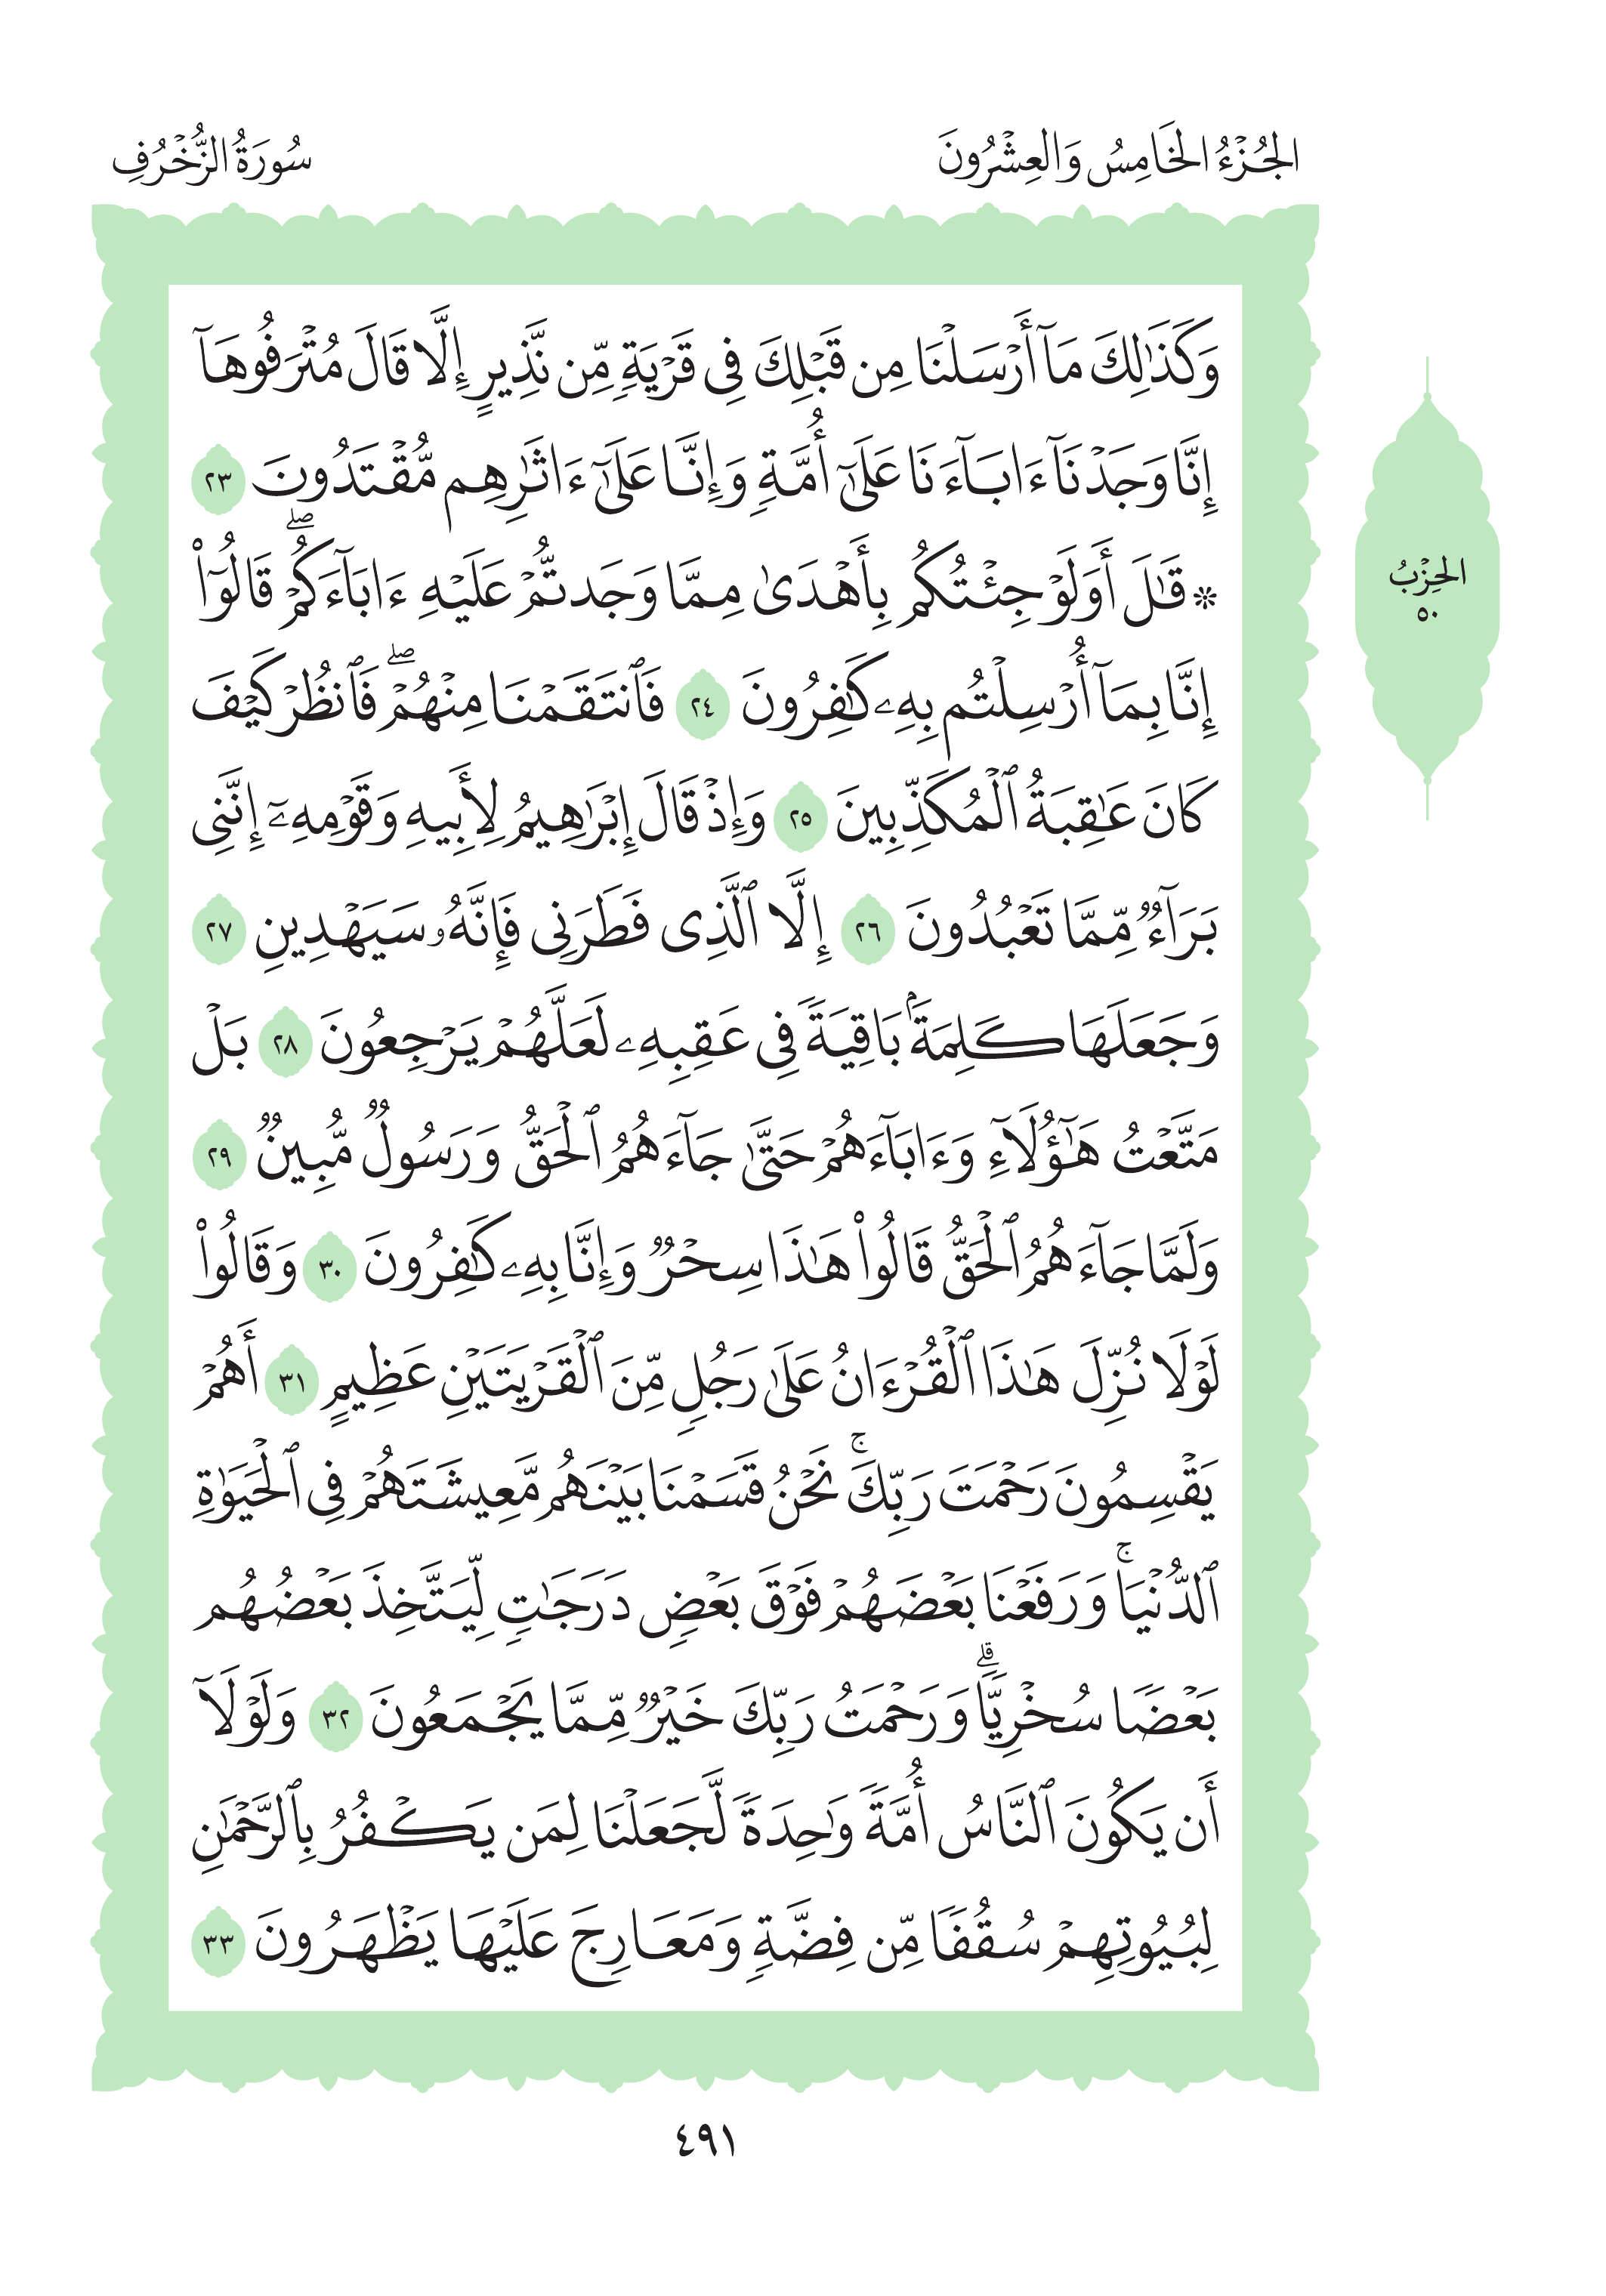 الجُزْءُ الخَامِسُ وَالعِشْرُونَ
سُورَةُ الزُّخْرُفِ
وَكَذَٰلِكَ مَآ أَرۡسَلۡنَا مِن قَبۡلِكَ فِي قَرۡيَةٖ مِّن نَّذِيرٍ إِلَّا قَالَ مُتۡرَفُوهَآ
إِنَّا وَجَدۡنَآ ءَابَآءَنَا عَلَىٰٓ أُمَّةٖ وَإِنَّا عَلَىٰٓ ءَاثَٰرِهِم مُّقۡتَدُونَ ٢٣
۞ قَٰلَ أَوَلَوۡ جِئۡتُكُم بِأَهۡدَىٰ مِمَّا وَجَدتُّمۡ عَلَيۡهِ ءَابَآءَكُمۡۖ قَالُوٓاْ
إِنَّا بِمَآ أُرۡسِلۡتُم بِهِۦ كَٰفِرُونَ ٢٤ فَٱنتَقَمۡنَا مِنۡهُمۡۖ فَٱنظُرۡ كَيۡفَ
كَانَ عَٰقِبَةُ ٱلۡمُكَذِّبِينَ ٢٥ وَإِذۡ قَالَ إِبۡرَٰهِيمُ لِأَبِيهِ وَقَوۡمِهِۦٓ إِنَّنِي
بَرَآءٞ مِّمَّا تَعۡبُدُونَ ٢٦ إِلَّا ٱلَّذِي فَطَرَنِي فَإِنَّهُۥ سَيَهۡدِينِ ٢٧
وَجَعَلَهَا كَلِمَةَۢ بَاقِيَةٗ فِي عَقِبِهِۦ لَعَلَّهُمۡ يَرۡجِعُونَ ٢٨ بَلۡ
مَتَّعۡتُ هَٰٓؤُلَآءِ وَءَابَآءَهُمۡ حَتَّىٰ جَآءَهُمُ ٱلۡحَقُّ وَرَسُولٞ مُّبِينٞ ٢٩
وَلَمَّا جَآءَهُمُ ٱلۡحَقُّ قَالُواْ هَٰذَا سِحۡرٞ وَإِنَّا بِهِۦ كَٰفِرُونَ ٣٠ وَقَالُواْ
لَوۡلَا نُزِّلَ هَٰذَا ٱلۡقُرۡءَانُ عَلَىٰ رَجُلٖ مِّنَ ٱلۡقَرۡيَتَيۡنِ عَظِيمٍ ٣١ أَهُمۡ
يَقۡسِمُونَ رَحۡمَتَ رَبِّكَۚ نَحۡنُ قَسَمۡنَا بَيۡنَهُم مَّعِيشَتَهُمۡ فِي ٱلۡحَيَوٰةِ
ٱلدُّنۡيَاۚ وَرَفَعۡنَا بَعۡضَهُمۡ فَوۡقَ بَعۡضٖ دَرَجَٰتٖ لِّيَتَّخِذَ بَعۡضُهُم
بَعۡضٗا سُخۡرِيّٗاۗ وَرَحۡمَتُ رَبِّكَ خَيۡرٞ مِّمَّا يَجۡمَعُونَ ٣٢ وَلَوۡلَآ
أَن يَكُونَ ٱلنَّاسُ أُمَّةٗ وَٰحِدَةٗ لَّجَعَلۡنَا لِمَن يَكۡفُرُ بِٱلرَّحۡمَٰنِ
لِبُيُوتِهِمۡ سُقُفٗا مِّن فِضَّةٖ وَمَعَارِجَ عَلَيۡهَا يَظۡهَرُونَ ٣٣
الحِزْبُ
٥٠
٤٩١